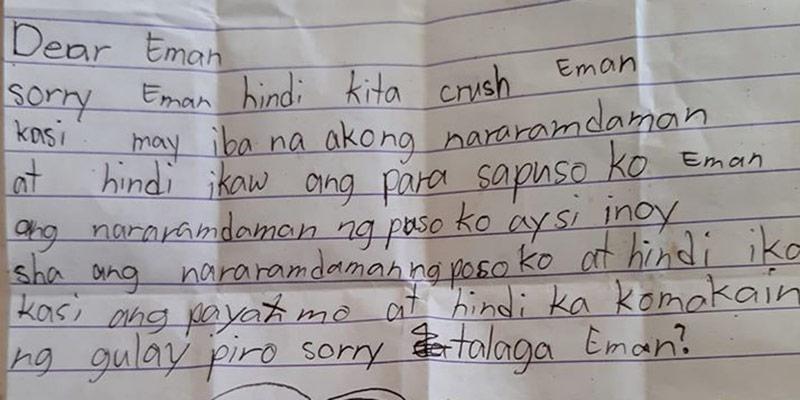 Dear Eman
sorry Eman hindi kita crush Eman
kasi may iba na akong nararamdaman
at hindi ikaw ang para sapuso ko Eman
ang nararamdaman ng puso ko aysi inoy
sha ang nararamdaman ng poso ko at hindi ika
kasi ang payat mo at hindi ka komakain
ng gulay piro sorry talaga Eman?